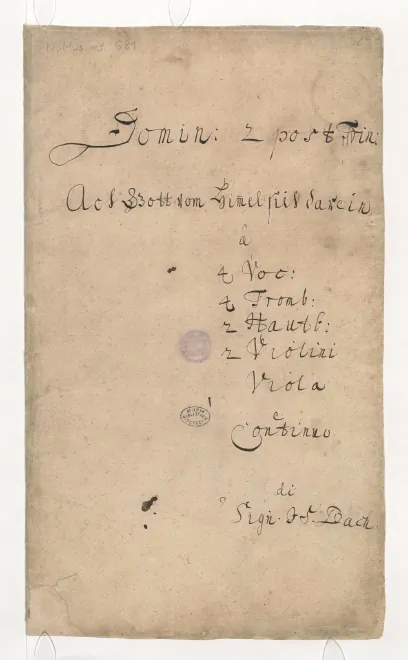 N. Mus. ms. 681
Domin: 2 post Trin:
Ach Gott vom Himel sieh darein
à
4 Voc:
4 Tromb:
2 Hautb:
2 Violini
Viola
e
Continuo
di
Sign. J. S. Bach.